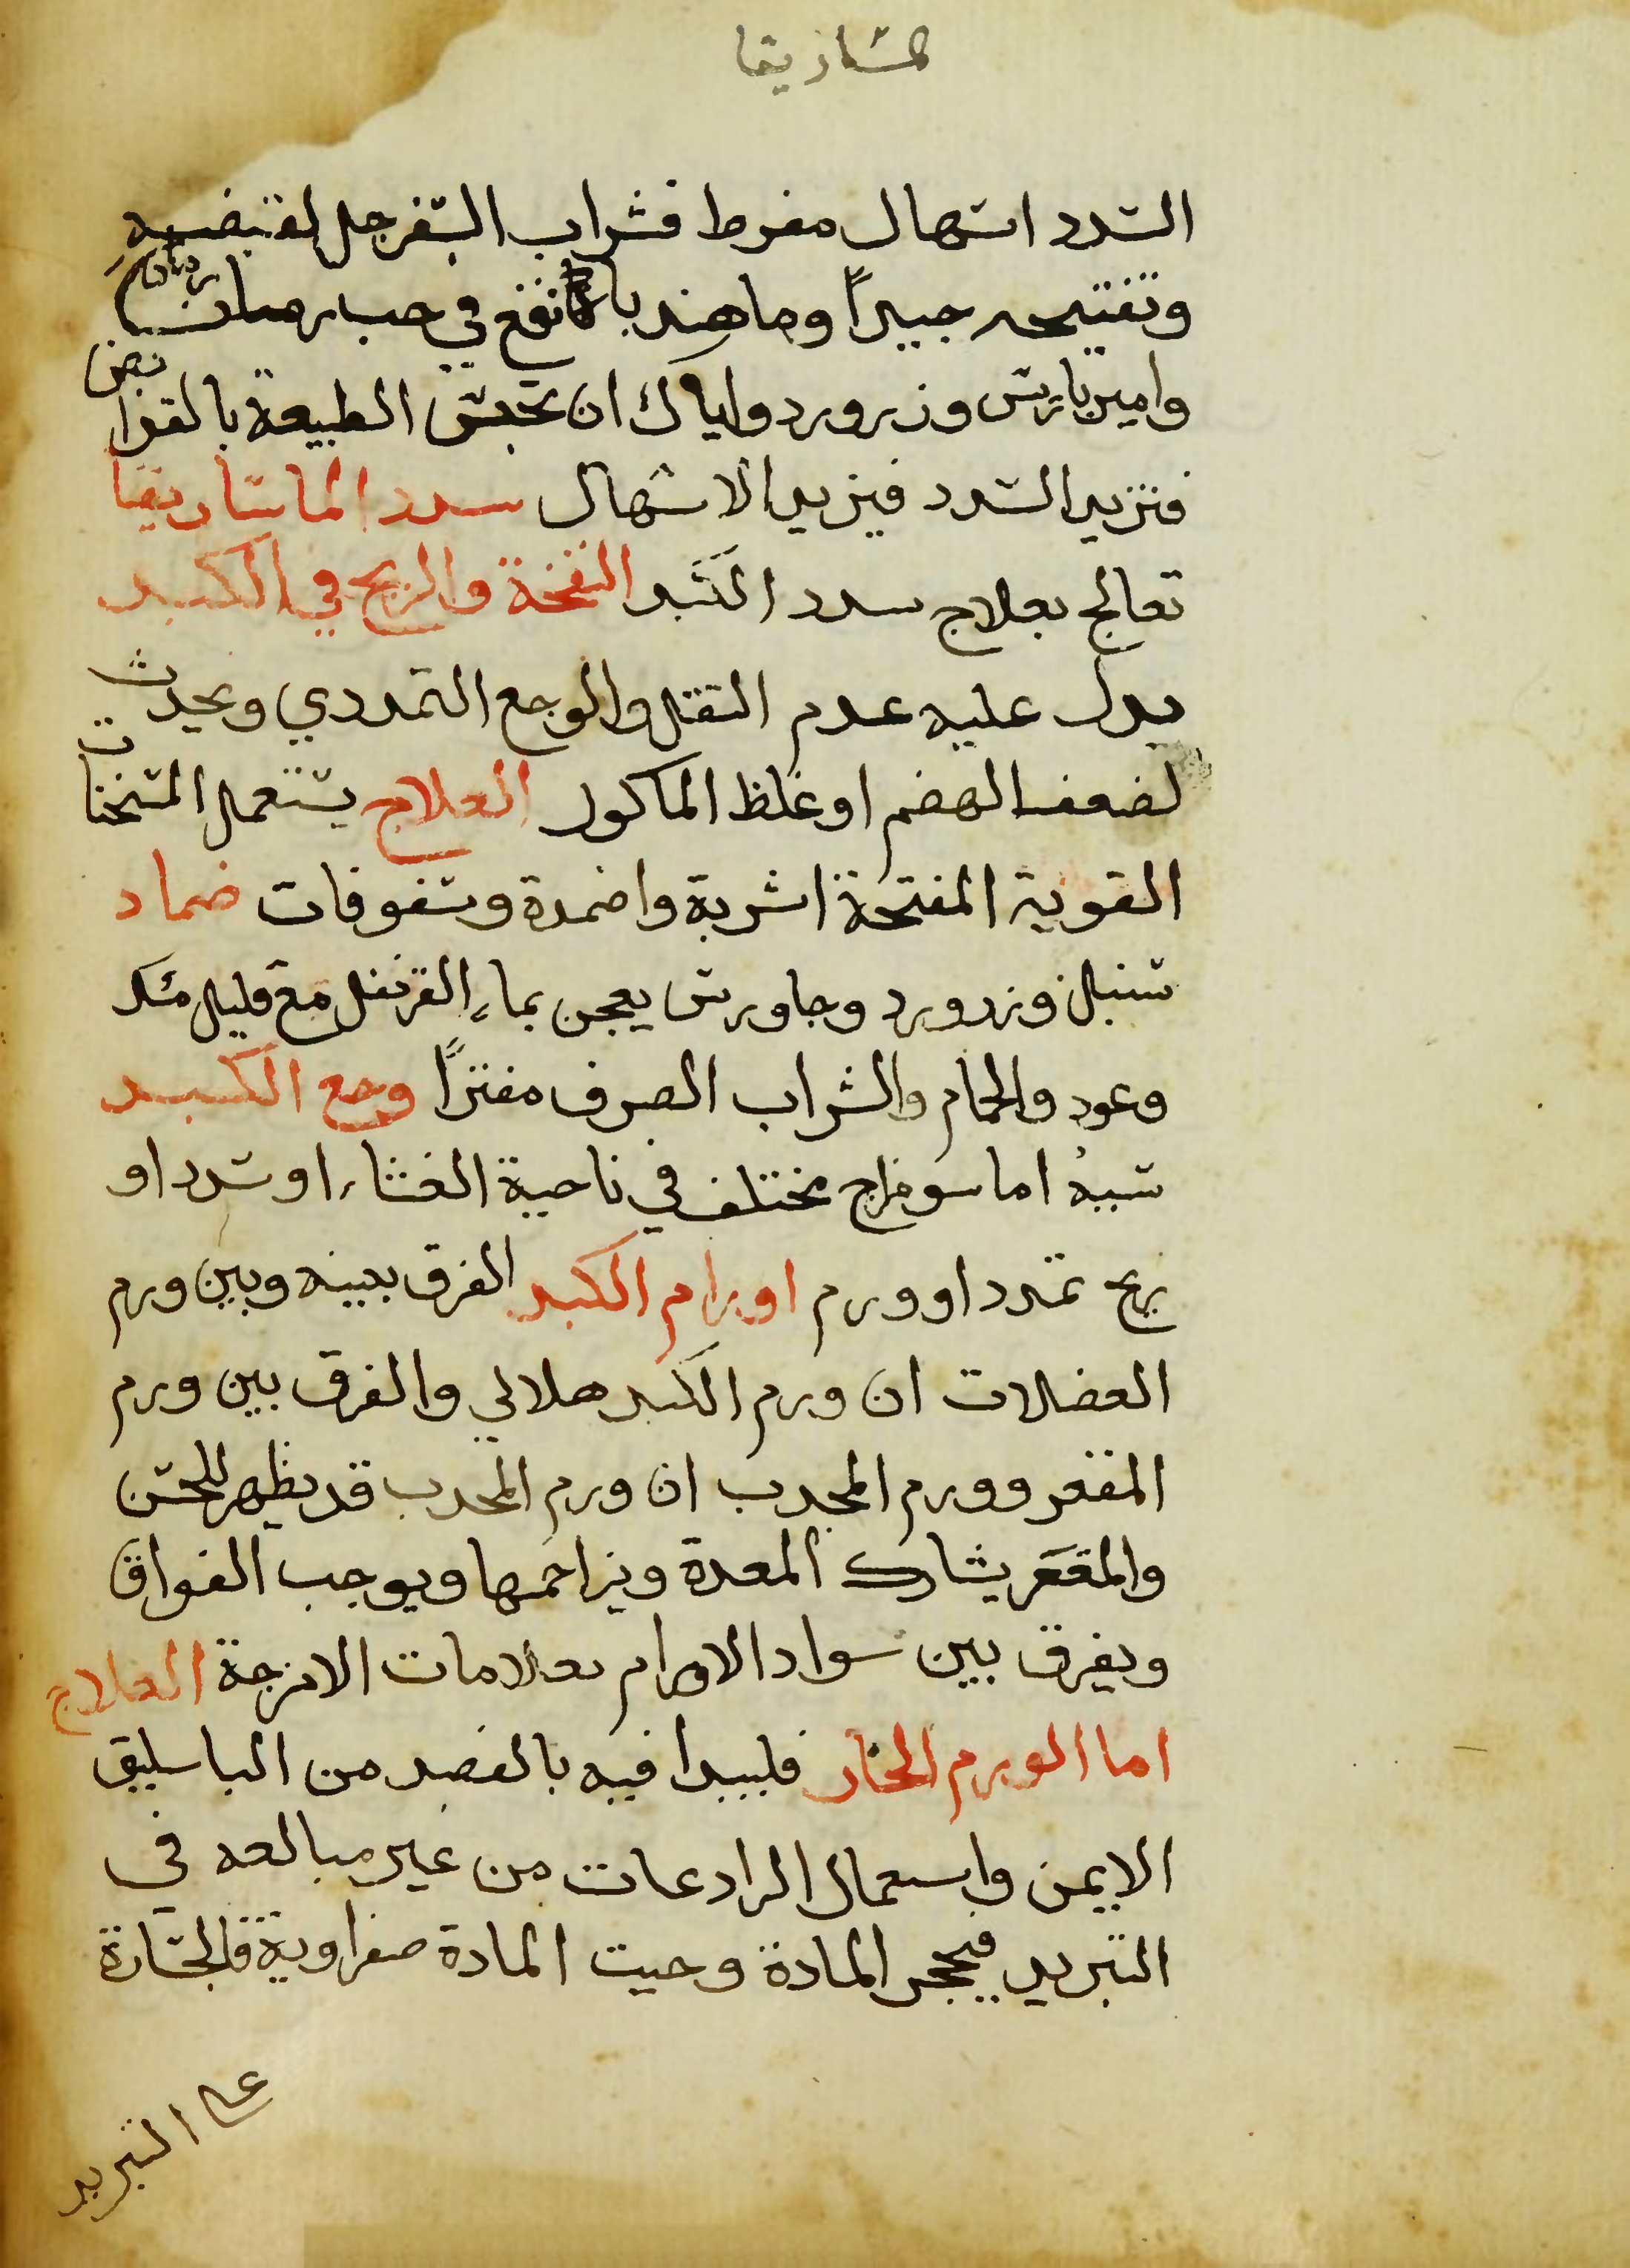 الساريقا
السدد اسهال مفرط فشراب السفرجل لقبضه
وتفتيحه جيد اً وما هندبا نقع في حب رمان
وامبرباريس وزرورد واياك ان تحبس الطبيعة بالقوابض
فتزيد السدد فيزيد الاسهال سدد الماساريقا
تعالج بعلاج سدد الكبد النفخة والريح في الكبد
يدل عليه عدم الثقل والوجع التمددي ويحدث
لضعف الهضم او غلظ الماكول العلاج يستعمل المسخنات
القوية المفتحة اشربة واضمدة وسفوفات ضماد
سنبل وزرورد وجاورس يعجن بماء القرنفل مع قليل مسك
وعود والحمام والشراب الصرف مفترًا وجع الكبد
سببه اما سو مزاج مختلف في ناحية الغشاء او سدد او
ريح تمدد او ورم اورام الكبد الفرق بينه وبين ورم
العضلات ان ورم الكبد هلالي والفرق بين ورم
المقعر وورم المحدب ان ورم المحدب قد يظهر للحس
والمقعر يشارك المعدة ويزاحمها ويوجب الفواق
ويفرق بين سواد الاورام بعلامات الامزجة العلاج
اما الورم الحار فليبدا فيه بالفصد من الباسليق
الايمن واستعمال الرادعات من غير مبالغه في
التبريد فيحجر المادة وحيت المادة صفراوية فالجسارة
على التبريد